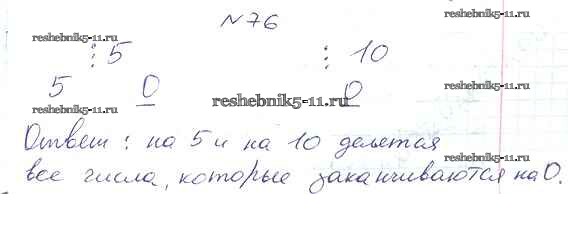 №76
reshebnik5-11.ru reshebnik5-11.ru
⋮ 5 ⋮ 10
5 0 0
reshebnik5-11.ru reshebnik5-11.ru reshebnik5-11.ru
Ответ: на 5 и на 10 делятся
reshebnik5-11.ru reshebnik5-11.ru
все числа, которые заканчиваются на 0.